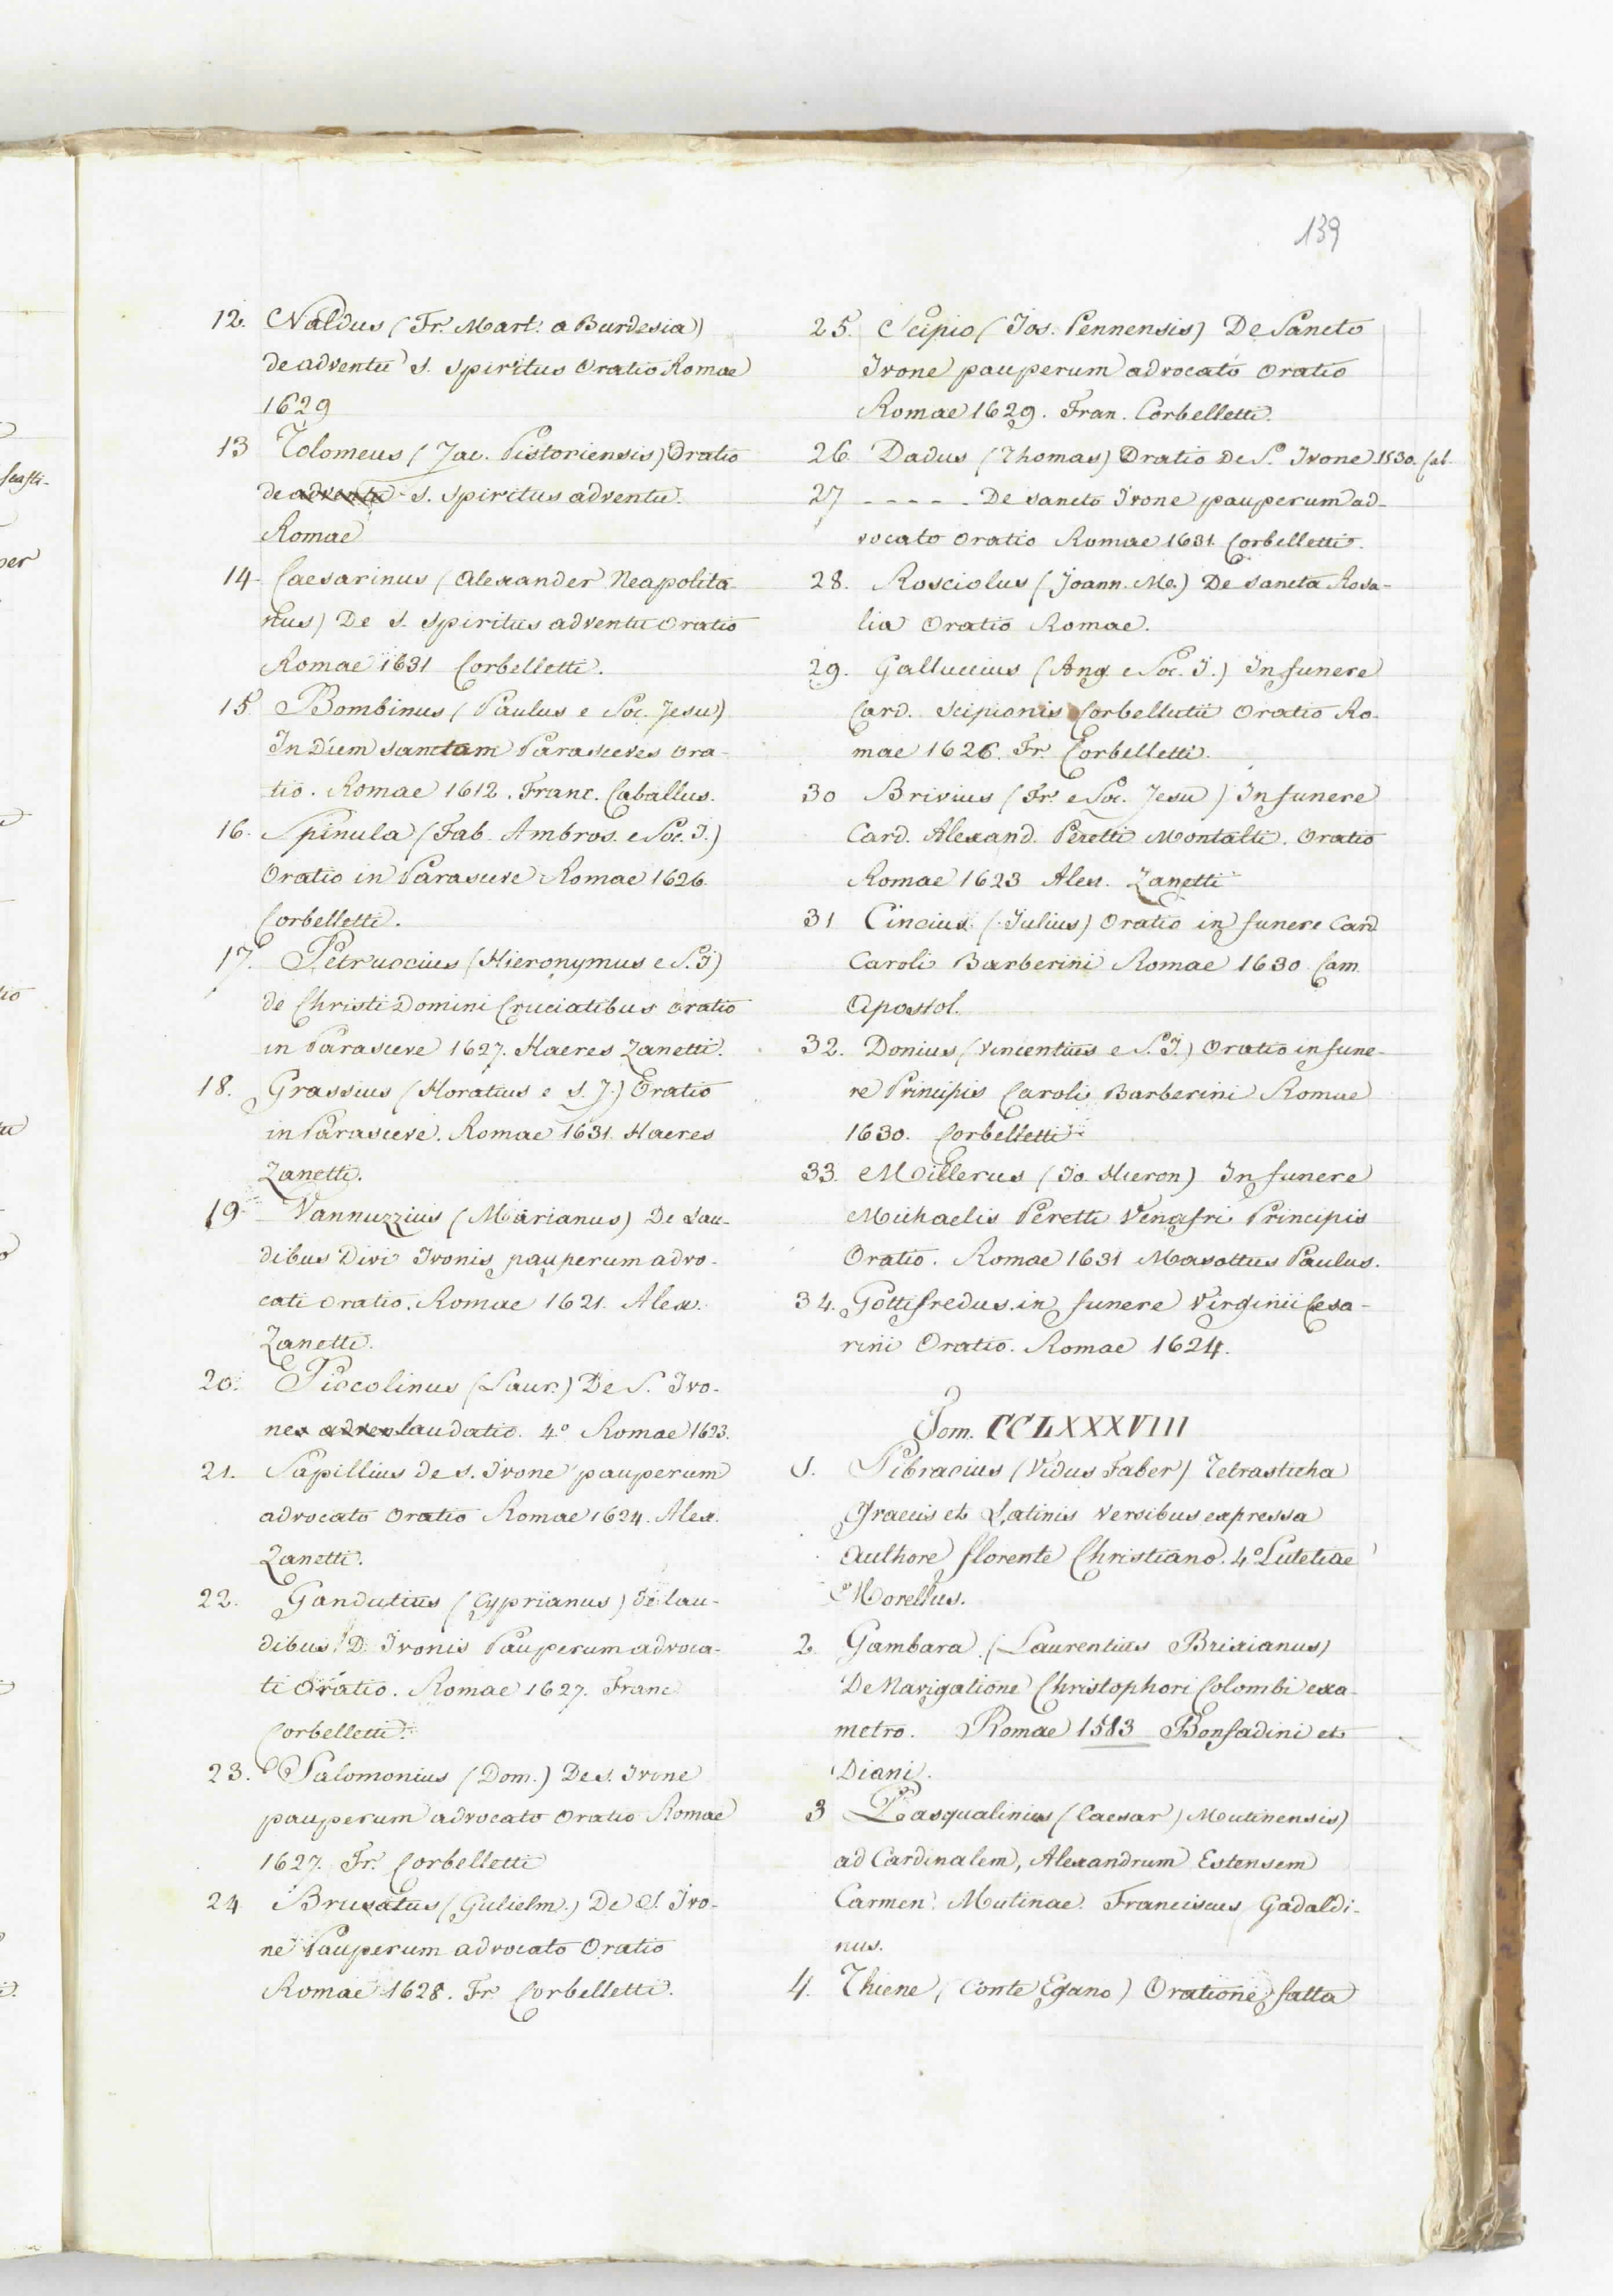 139
12. Naldus (Fr. Mart. a Burdesia)
de adventu S. Spiritus Oratio Romae
1629
13 Tolomeus (Jac. Pistoriensis) Oratio
de adventu S. Spiritus adventu.
Romae
14. Caesarinus (Alexander Neapolita-
nus) De S. Spiritus adventu Oratio
Romae 1631 Corbelletti.
15 Bombinus (Paulus e Soc. Jesu)
In Diem sanctam Parasceves Ora-
tio. Romae 1612. Franc. Caballus.
16. Spinula (Fab. Ambros. e Soc. J.)
Oratio in Parasceve Romae 1626.
Corbelletti.
17. Petruccius (Hieronymus e S. J)
de Christi Domini Cruciatibus Oratio
in Parasceve 1627. Haeres Zanetti.
18. Grassius (Horatius e S. J.) Oratio
in Parasceve. Romae 1631. Haeres
Zanetti.
19 Vannuzzius (Marianus) De Lau-
dibus Divi Ivonis pauperum advo-
cati Oratio. Romae 1621. Alex.
Zanetti.
20. Piccolinus (Laur.) De S. Ivo-
ne laudatio. 4º Romae 1623.
21. Papillius de S. Ivone pauperum
advocato Oratio Romae 1624. Alex.
Zanetti.
22. Gandutius (Cyprianus) De lau-
dibus D. Ivonis Pauperum advoca-
ti Oratio. Romae 1627. Franc
Corbelletti.
23. Salomonius (Dom.) De S. Ivone
pauperum advocato Oratio Romae
1627. Fr. Corbelletti
24 Brusatus (Gulielm.) De S. Ivo-
ne Pauperum advocato Oratio
Romae 1628. Fr. Corbelletti.
25. Scipio (Jos. Pennensis) De Sancto
Ivone pauperum advocato Oratio
Romae 1629. Fran. Corbelletti.
26 Dadus (Thomas) Oratio De S. Ivone 1530. Cal.
27 ----- De sancto Ivone pauperum ad-
vocato Oratio Romae 1631. Corbelletti.
28. Rosciolus (Joann. M.) De sancta Rosa-
lia Oratio Romae.
29. Galluccius (Ang. e Soc. J.) In funere
Card. Scipionis Corbellutii Oratio Ro-
mae 1626. Fr. Corbelletti.
30 Brivius (Fr. e Soc. Jesu) In funere
Card. Alexand. Peretti Montalti. Oratio
Romae 1623 Alex. Zanetti
31 Cincius (Julius) Oratio in funere Card
Caroli Barberini Romae 1630. Cam.
Apostol.
32. Donius (Vincentius e S. J.) Oratio in fune-
re Principis Caroli Barberini Romae
1630. Corbelletti
33. Millerus (Jo. Hieron) In funere
Michaelis Peretti Venafri Principis
Oratio. Romae 1631 Masottus Paulus.
34. Gottifredus in funere Virginii Cesa-
rini Oratio. Romae 1624.
Tom. CCLXXXVIII
1. Pibracius (Vidus Faber) Tetrasticha
Graecis et Latinis versibus expressa
authore florente Christiano. 4º Lutetiae
Morellus.
2 Gambara (Laurentius Brixianus)
De Navigatione Christophori Colombi exa-
metro. Romae 1583 Bonfadini et
Diani.
3 Pasqualinius (Caesar) Mutinensis)
ad Cardinalem, Alexandrum Estensem
Carmen. Mutinae. Franciscus Gadaldi-
nus.
4. Thiene (Conte Egano) Oratione fatta